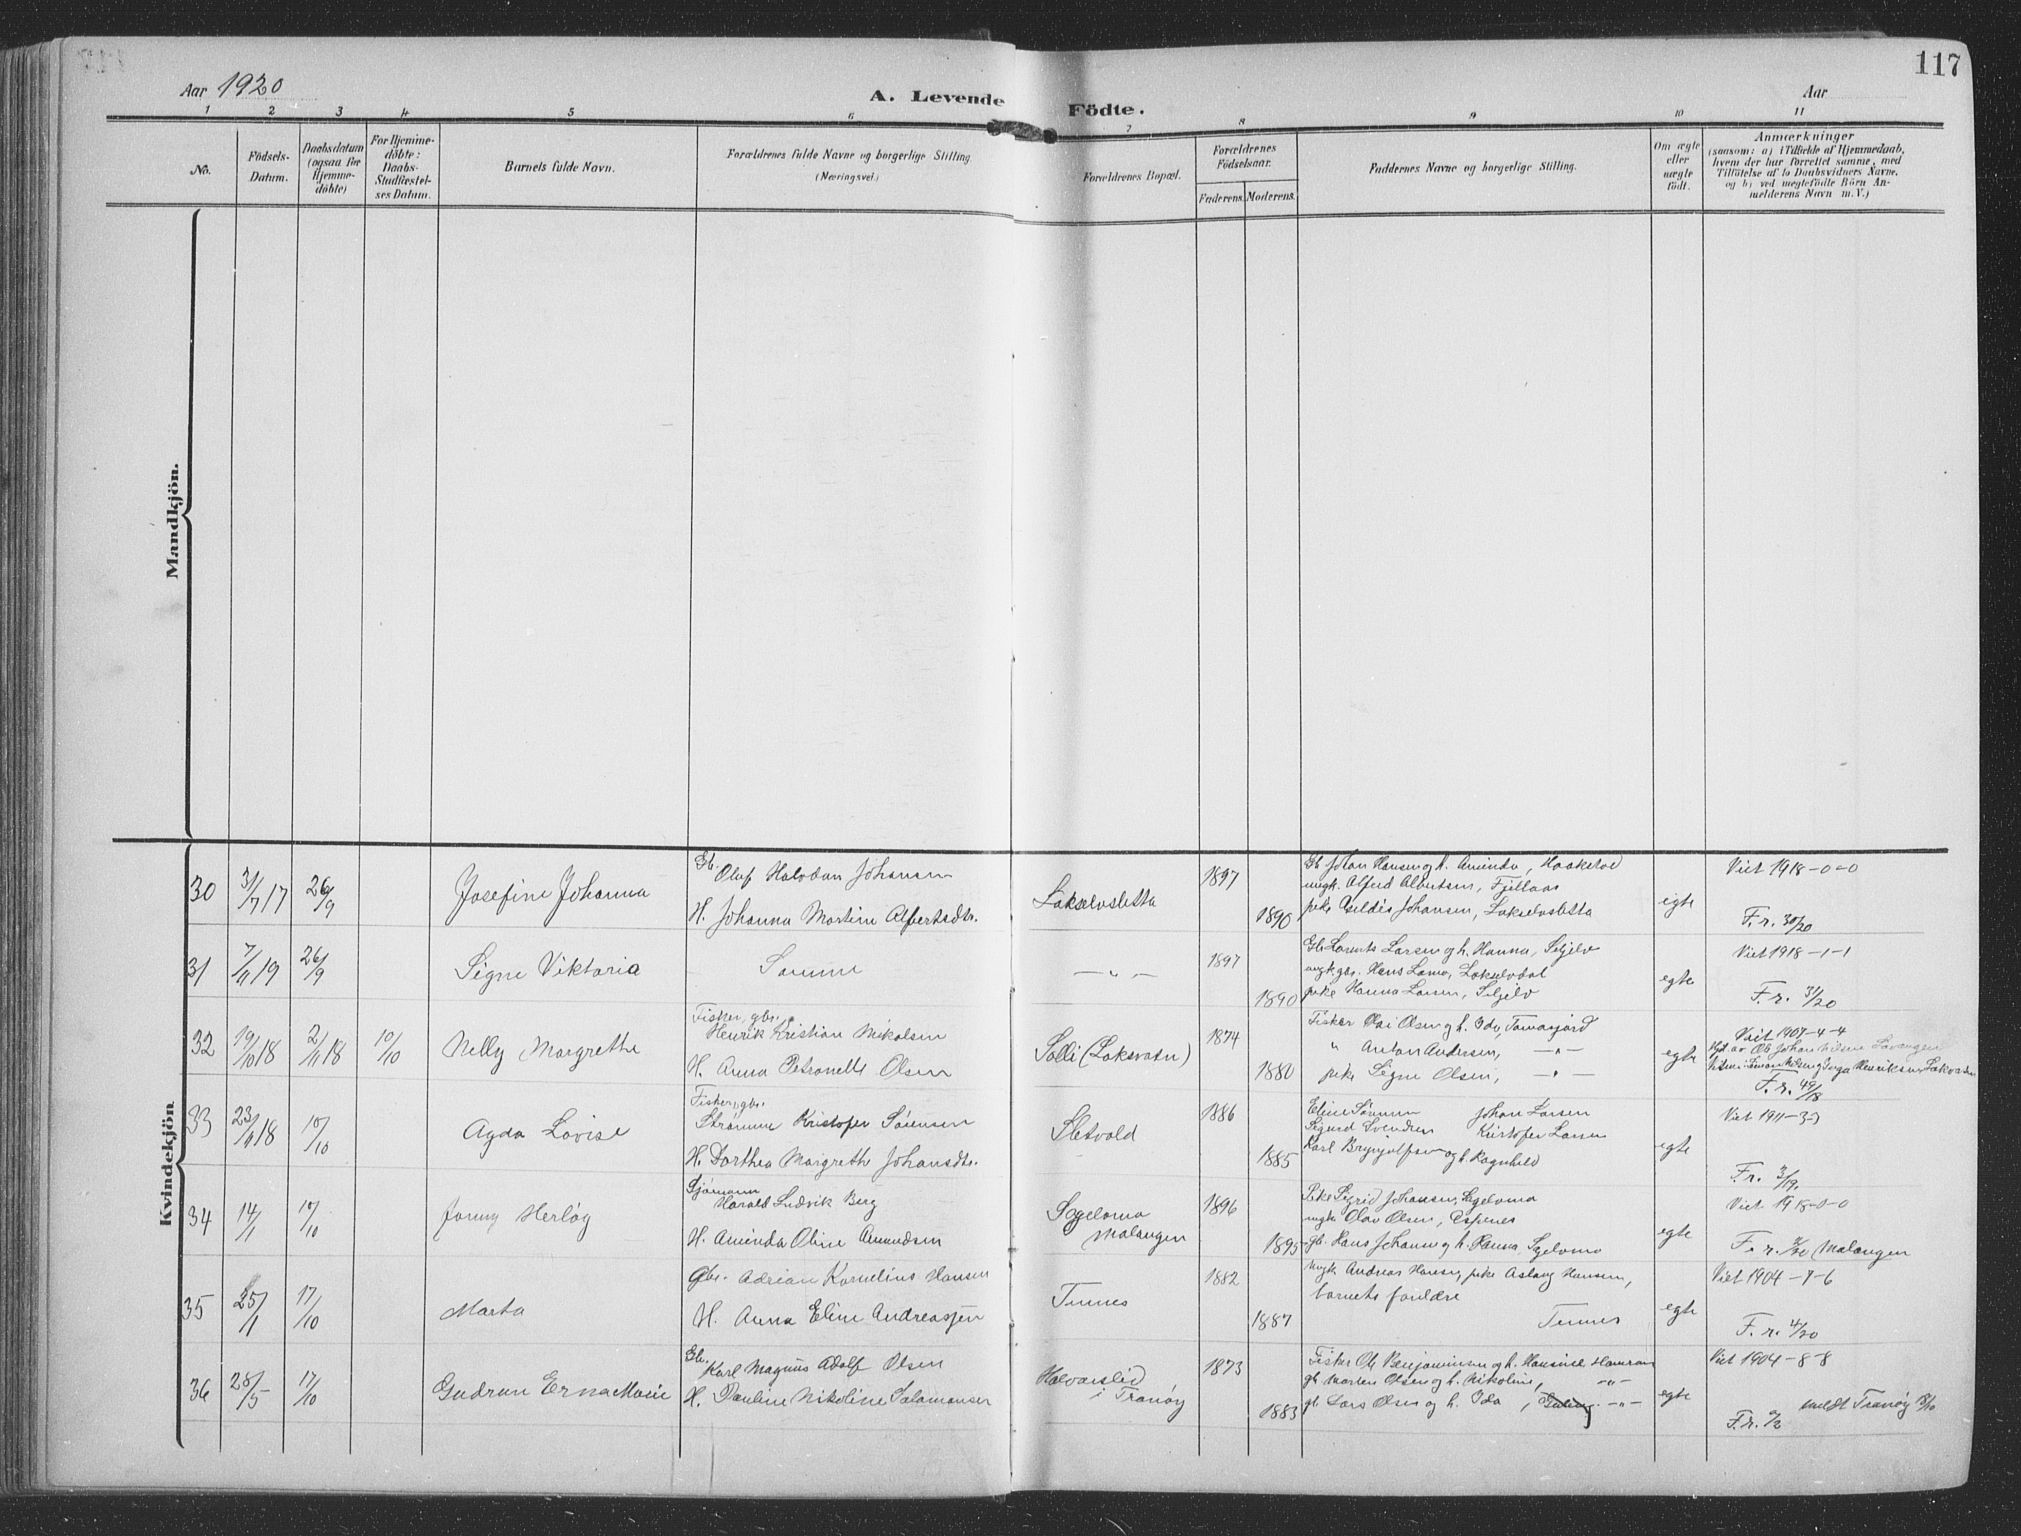 117
Aar 1920
A. Levende Födte.
Aar
1 2 3 4 5 6 7 8 9 10 11
No.
Födsels-
Datum.
Daabsdatum
(ogsaa for
Hjemme-
döbte)
For Hjemme-
döbte:
Daabs-
Stadfæstel-
ses Datum.
Barnets fulde Navn.
Forældrenes fulde Navne og borgerlige Stilling
(Næringsvei.)
Forældrenes Bopæl.
Forældrenes
Födselsaar.
Faderens. Moderens.
Faddernes Navne og borgerlige Stilling.
Om ægte
eller
uægte
födt.
Anmærkninger
(saasom: a) i Tilfælde af Hjemmedaab,
hvem der har forrettet samme, med
Tilföielse af to Daabsvidners Navne,
og b) ved uegtefödte Börn An-
melderens Navn m. V.)
Mandkjön.
Kvindekjön
30 31/7 17 26/9 Josefine Johanna
Gb. Oluf Halvdan Johansen
H. Johanna Martine Albertsdtr.
Lakselvsletta 1897 1890
Gb. Johan Hansen og h. Aminda, Haakstad
ungk. Alfred Albertsen, Fjellaas
pike Hildis Johansen, Lakselvsletta
egte
Viet 1918-0-0
F. r. 30/20
31 7/11 19 26/9 Signe Viktoria
Samme
— " — 1897 1890
Gb. Laurits Larsen og h. Hanna, Seljelv
ungk. gbr. Hans Lamo, Lakselvdal
pike Hanna Larsen, Seljelv
egte
Viet 1918-1-1
F. r. 31/20
32 19/10 18 2/11 18 10/10 Nelly Margrethe
Fisker, gbr.
Henrik Kristian Nikolsen
H. Anna Petronelle Olsen
Solli (Laksvatn) 1874 1880
Fisker Olai Olsen og h. Ida, Tomasjord
" Anton Andersen, — " —
pike Signe Olsen, — " —
egte
Viet 1907-4-4
F. r. 49/18
33 23/11 18 10/10 Agda Lovise
Fisker, gbr.
Strømme Kristofer Sørensen
H. Dorthea Margreth Johansdtr.
Sletvold 1886 1885
Johan Larsen
Sigurd Svendsen Kristofer Larsen
Karl Brynjolfsen og h. Ragnhild
egte
Viet 1911-3-3
F. r. 3/19.
34 14/1 10/10 Jonny Herlög
Sjømann
Harald Ludvik Berg
H. Aminda Oline Amundsen
Malangen 1896 1895
Pike Sigrid Johansen,
ungk. Olav Olsen, Espenes
gb. Hans Johansen og h. Hanna,
egte
Viet 1918-0-0
F. r. 2/20 Malangen
35 25/1 17/10 Marta
gbr. Adrian Kornelius Hansen
H. Anna Eline Andreassen
Tennes 1882 1887
ungk. Andreas Hansen, pike Aslaug Hansen,
barnets foreldre
Tennes
egte
Viet 1904-7-6
F. r. 4/20
36 28/5 17/10 Gudrun Erna Marie
Gb. Karl Magnus Adolf Olsen
H. Pauline Nikoline Salamonsen
Halvarslid
i Tranøy 1873 1883
Fisker Ole Benjaminsen og h. Hansine Hamran
gb. Morten Olsen og h. Nikoline, — " —
gb. Lars Olsen og h. Ida, — " —
egte
Viet 1904-8-8
meldt Tranøy
F. r.